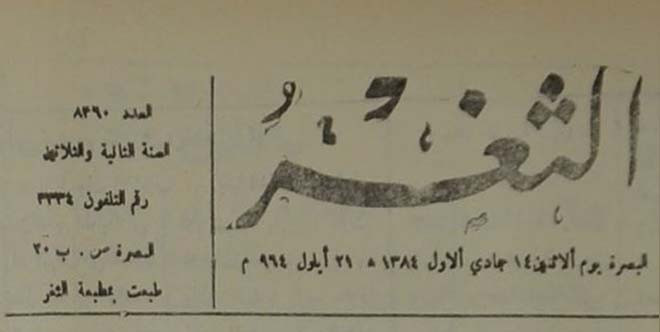 الثغر
البصرة يوم ألاثنين ١٤ جمادي ألاول ١٣٨٤ ه ٢١ أيلول ٩٦٤ م
العدد ٨٣٩٠
السنة الثانية والثلاثين
رقم التلفون ٣٣٣٤
البصرة ص . ب ٢٠
طبعت بمطبعة الثغر